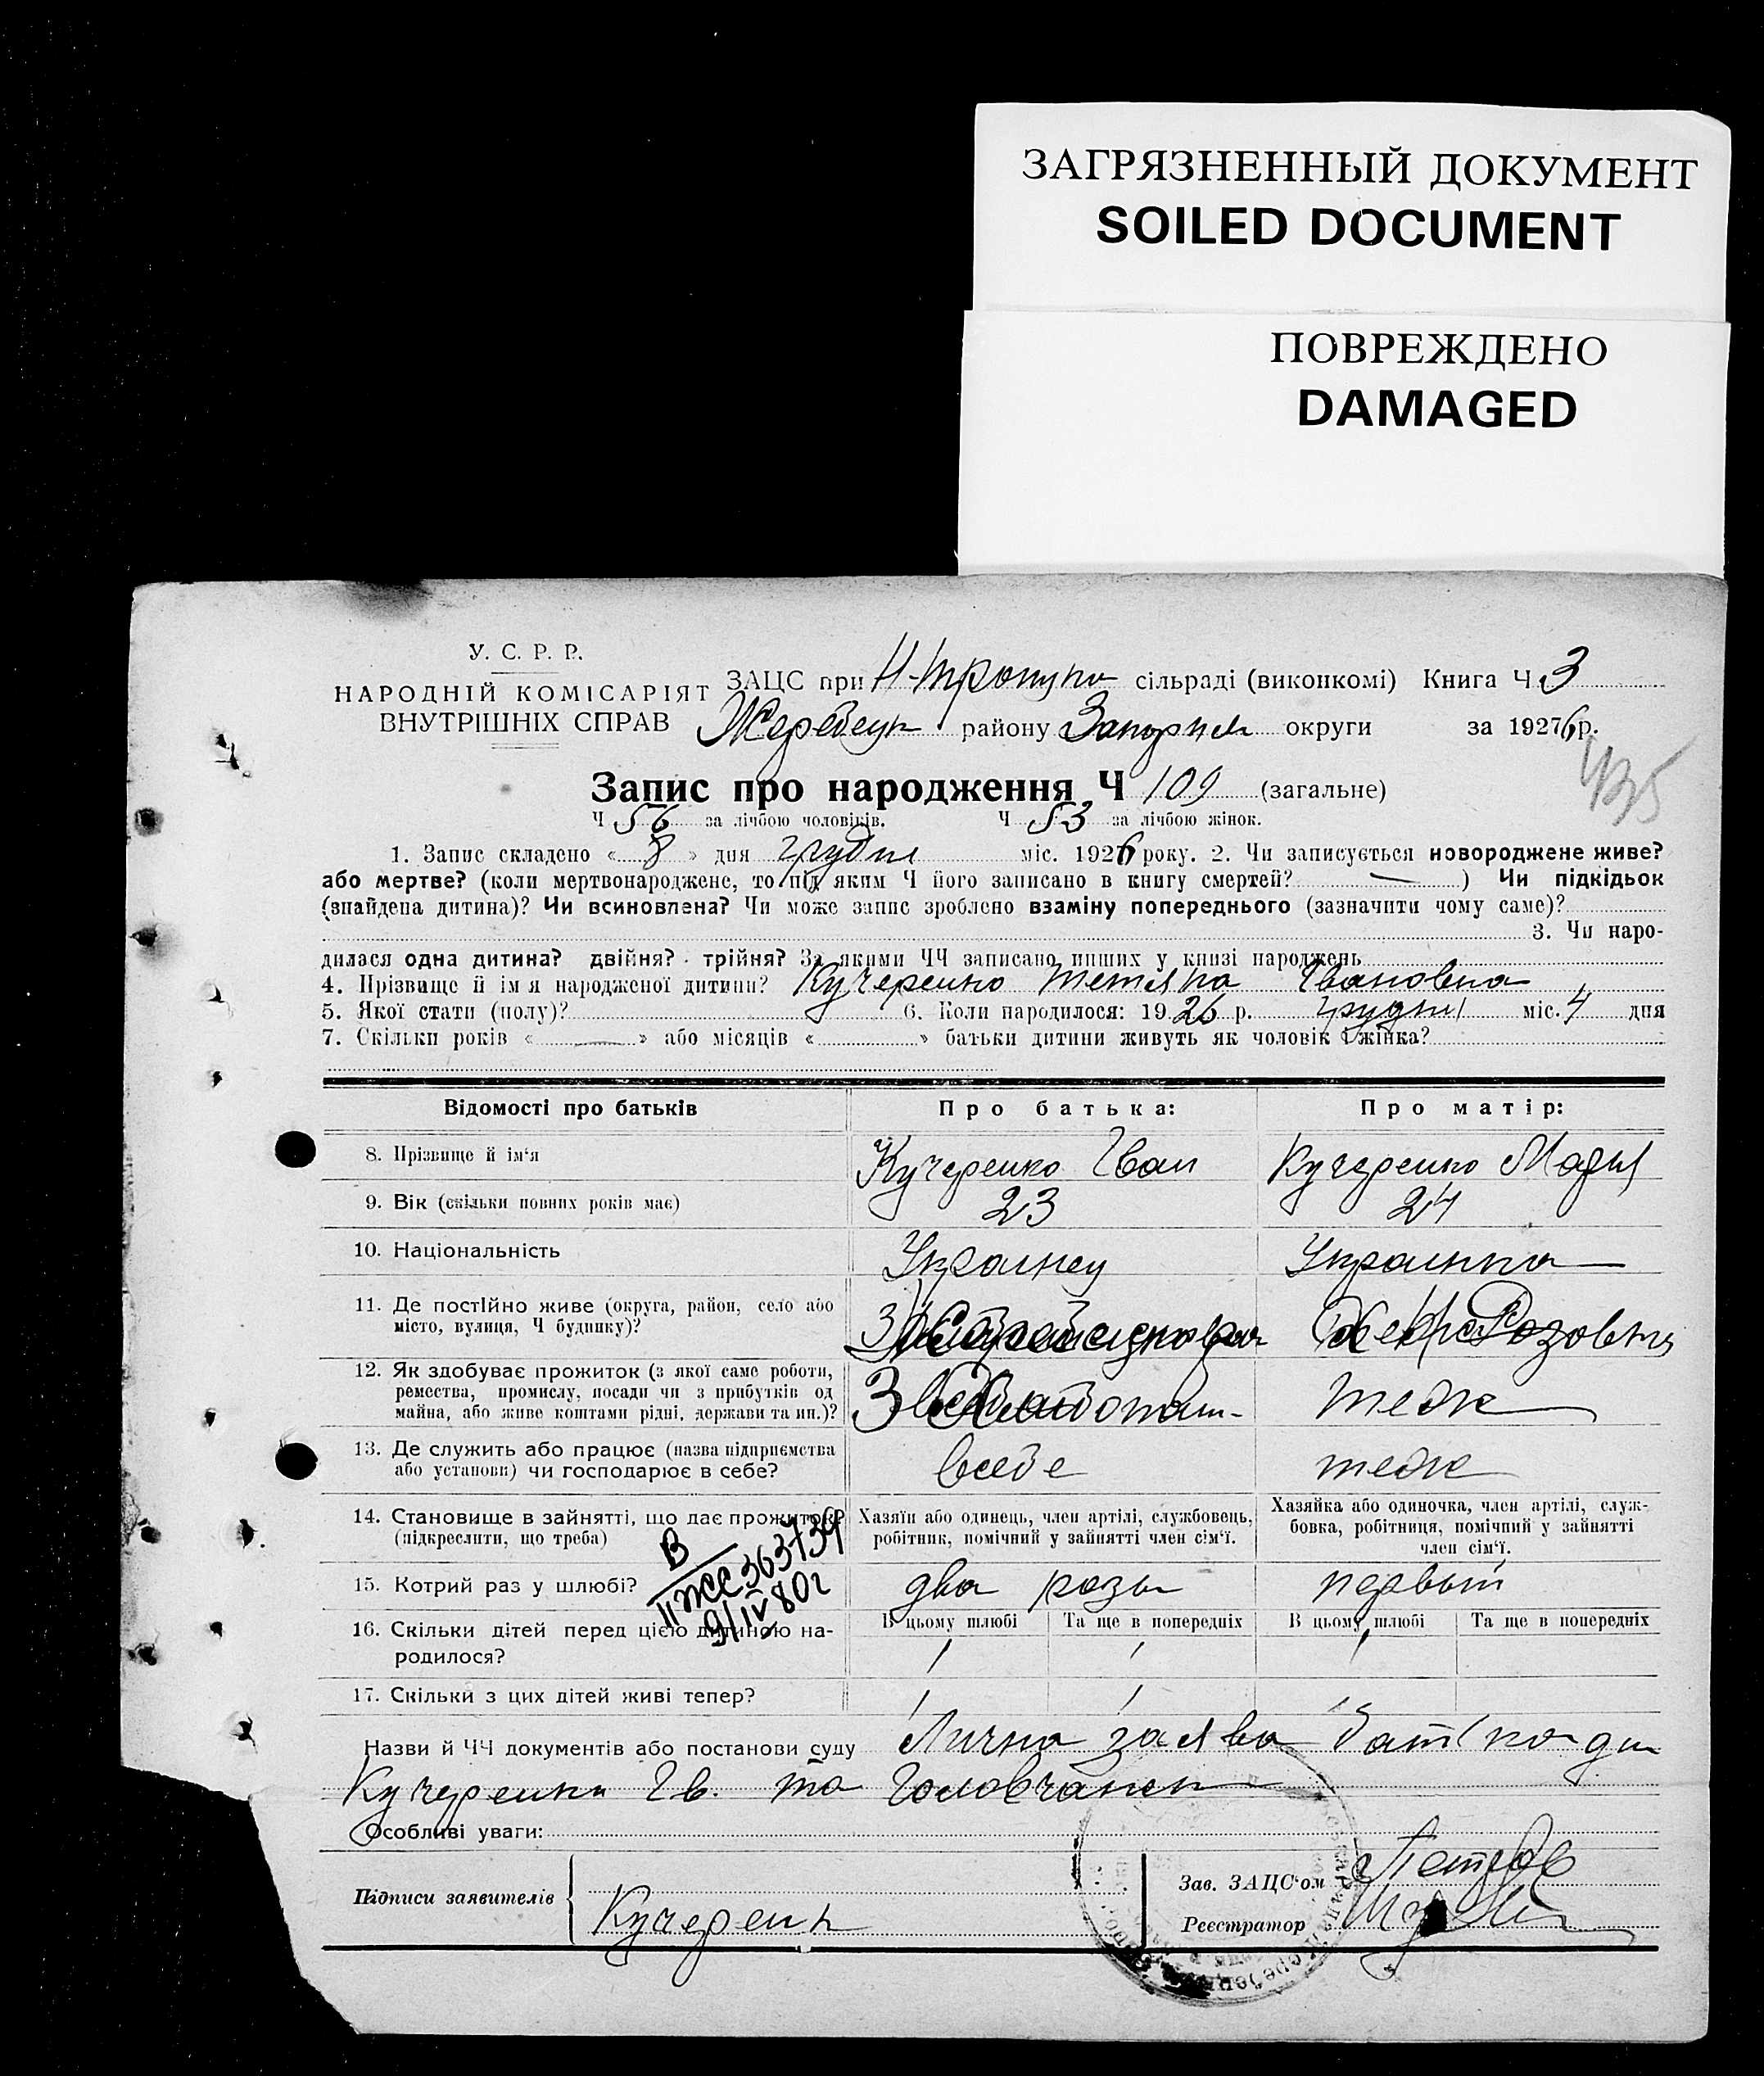 ЗАГРЯЗНЕННЫЙ ДОКУМЕНТ
SOILED DOCUMENT
ПОВРЕЖДЕНО
DAMAGED
У. С. Р. Р.
НАРОДНІЙ КОМІСАРІЯТ
ВНУТРІШНІХ СПРАВ
ЗАЦС при сільраді (виконкомі) Книга Ч 3
району округи за 1926 р.
435
Запис про народження Ч 109 (загальне)
Ч 56 за лічбою чоловіків. Ч 53 за лічбою жінок.
1. Запис складено « 8 » дня грудня міс. 1926 року. 2. Чи записується новороджене живе?
або мертве? (коли мертвонароджене, то під яким Ч його записано в книгу смертей? — ) Чи підкідьок
(знайдена дитина)? Чи всиновлена? Чи може запис зроблено взаміну попереднього (зазначити чому саме)?
3. Чи наро-
дилася одна дитина? двійня? трійня? За якими ЧЧ записано инших у книзі народжень
4. Прізвище й ім я народженої дитини? Кучеренко Тетяна Івановна
5. Якої стати (полу)? 6. Коли народилося: 1926 р. грудня міс. 4 дня
7. Скільки років « — » або місяців « » батьки дитини живуть як чоловік і жінка?
Відомості про батьків Про батька: Про матір:
8. Прізвище й ім'я Кучеренко Іван Кучеренко Мария
9. Вік (скільки повних років має) 23 24
10. Національність Украинец Украинка
11. Де постійно живе (округа, район, село або
місто, вулиця, Ч будинку)?
12. Як здобуває прожиток (з якої саме роботи,
ремества, промислу, посади чи з прибутків од
майна, або живе коштами рідні, держави та ин.)? теж
13. Де служить або працює (назва підприємства
або установи) чи господарює в себе? всебе теж
14. Становище в зайнятті, що дає прожиток?
(підкреслити, що треба)
Хазяїн або одинець, член артілі, службовець,
робітник, помічний у зайнятті член сім'ї.
Хазяйка або одиночка, член артілі, служ-
бовка, робітниця, помічний у зайнятті
член сім'ї.
В
II ЖС 363739
9/IV 80г
15. Котрий раз у шлюбі? два разы первый
16. Скільки дітей перед цією дитиною на-
родилося?
В цьому шлюбі Та ще в попередніх В цьому шлюбі Та ще в попередніх
1 1 1
17. Скільки з цих дітей живі тепер? 1 1 1
Назви й ЧЧ документів або постанови суду Лична заява батька
Кучеренка Ів. та
Особливі уваги:
Підписи заявителів Кучеренк
Зав. ЗАЦС'ом Петров
Реєстратор